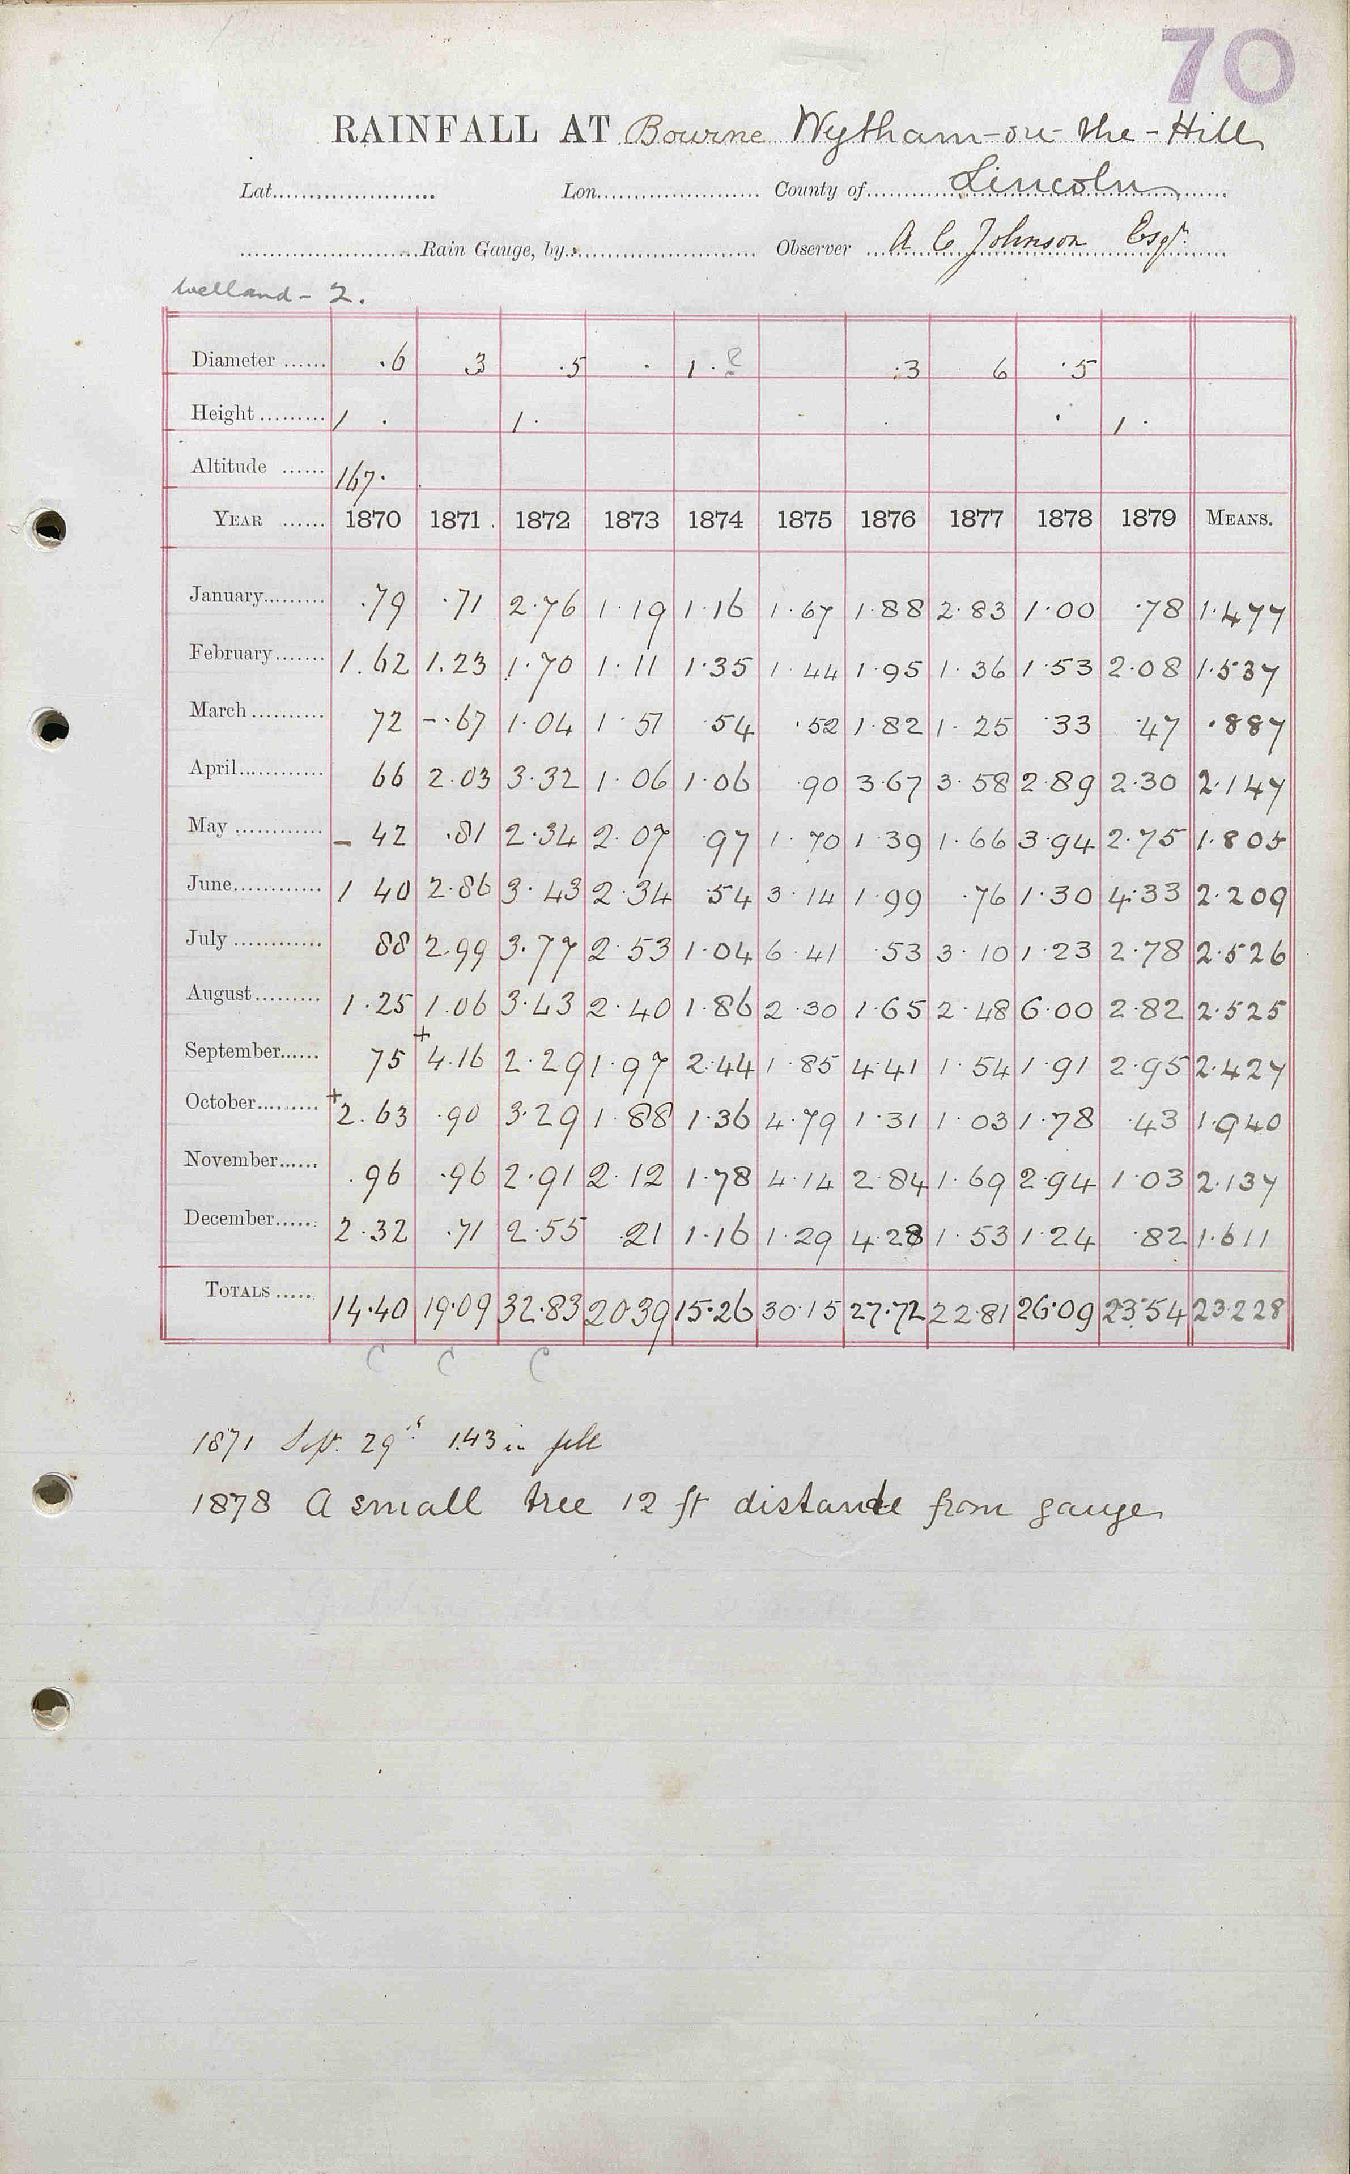 70
RAINFALL AT Bourne Wytham-on-the-Hill
Lat. Lon. County of Lincoln
Rain Gauge, by Observer A C Johnson Esqr.
Welland - 2.
Diameter .6 3 .5 . 1 . 8 .3 6 .5
Height 1 . 1. . 1.
Altitude 167.
YEAR 1870 1871. 1872 1873 1874 1875 1876 1877 1878 1879 MEANS.
January .79 .71 2.76 1.19 1.16 1.67 1.88 2.83 1.00 .78 1.477
February 1.62 1.23 1.70 1.11 1.35 1.44 1.95 1.36 1.53 2.08 1.537
March 72 -.67 1.04 1.51 .54 .52 1.82 1.25 .33 .47 .887
April 66 2.03 3.32 1.06 1.06 .90 3.67 3.58 2.89 2.30 2.147
May - 42 .81 2.34 2.07 .97 1.70 1.39 1.66 3.94 2.75 1.805
June 1 40 2.86 3.43 2.34 .54 3.14 1.99 .76 1.30 4.33 2.209
July 88 2.99 3.77 2.53 1.04 6.41 .53 3.10 1.23 2.78 2.526
August 1.25 1.06 3.43 2.40 1.86 2.30 1.65 2.48 6.00 2.82 2.525
September 75 +4.16 2.29 1.97 2.44 1.85 4.41 1.54 1.91 2.95 2.427
October +2.63 .90 3.29 1.88 1.36 4.79 1.31 1.03 1.78 .43 1.940
November .96 .96 2.91 2.12 1.78 4.14 2.84 1.69 2.94 1.03 2.137
December 2.32 .71 2.55 .21 1.16 1.29 4.28 1.53 1.24 .82 1.611
TOTALS 14.40 19.09 32.83 20.39 15.26 30.15 27.72 22.81 26.09 23.54 23.228
C C C
1871 Sept. 29th 1.43 in fell
1878 A small tree 12 ft distante from gauge